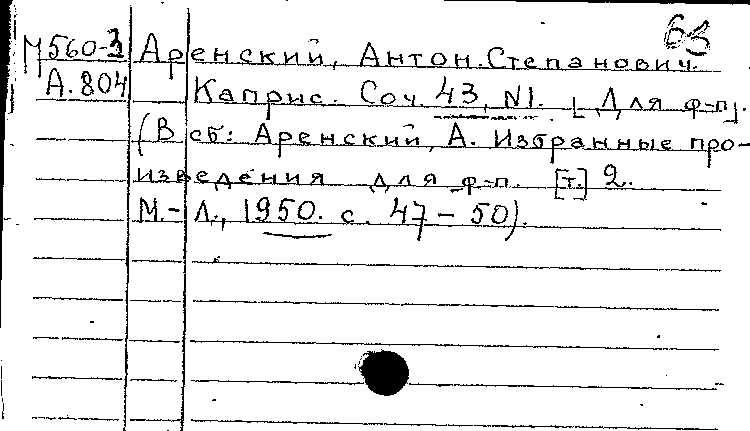 63
М560-3 Аренский, Антон Степанович.
А.804 Каприс. Соч. 43, N1. [Для ф-п].
(В сб: Аренский, А. Избранные про-
изведения для ф-п. [т.] 2.
М.-Л., 1950. с. 47-50).